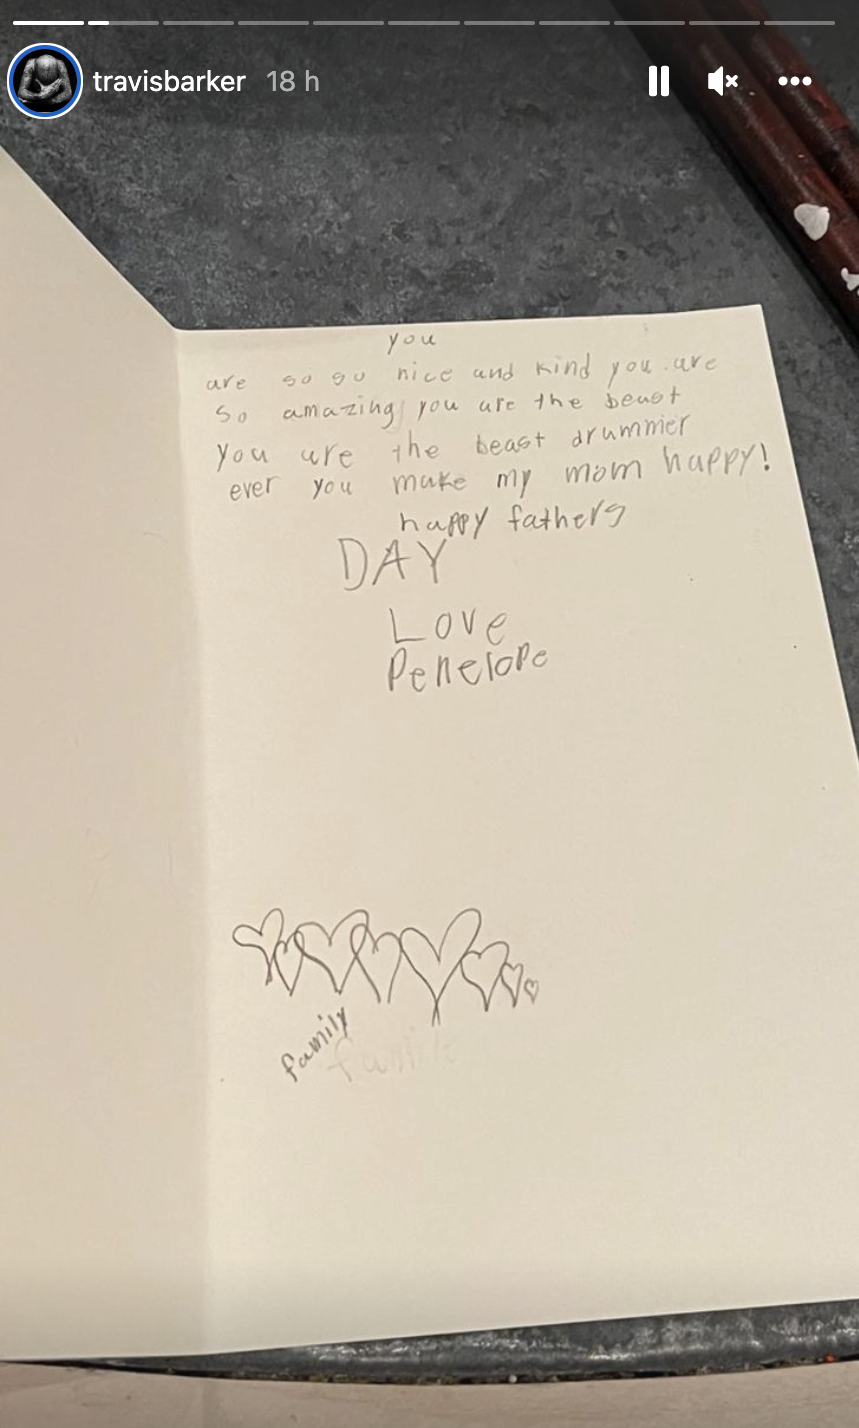 travisbarker 18 h
you
are so so nice and kind you are
so amazing you are the beast
you are the beast drummer
ever you make my mom happy!
happy fathers
DAY
Love
Penelope
family
famile